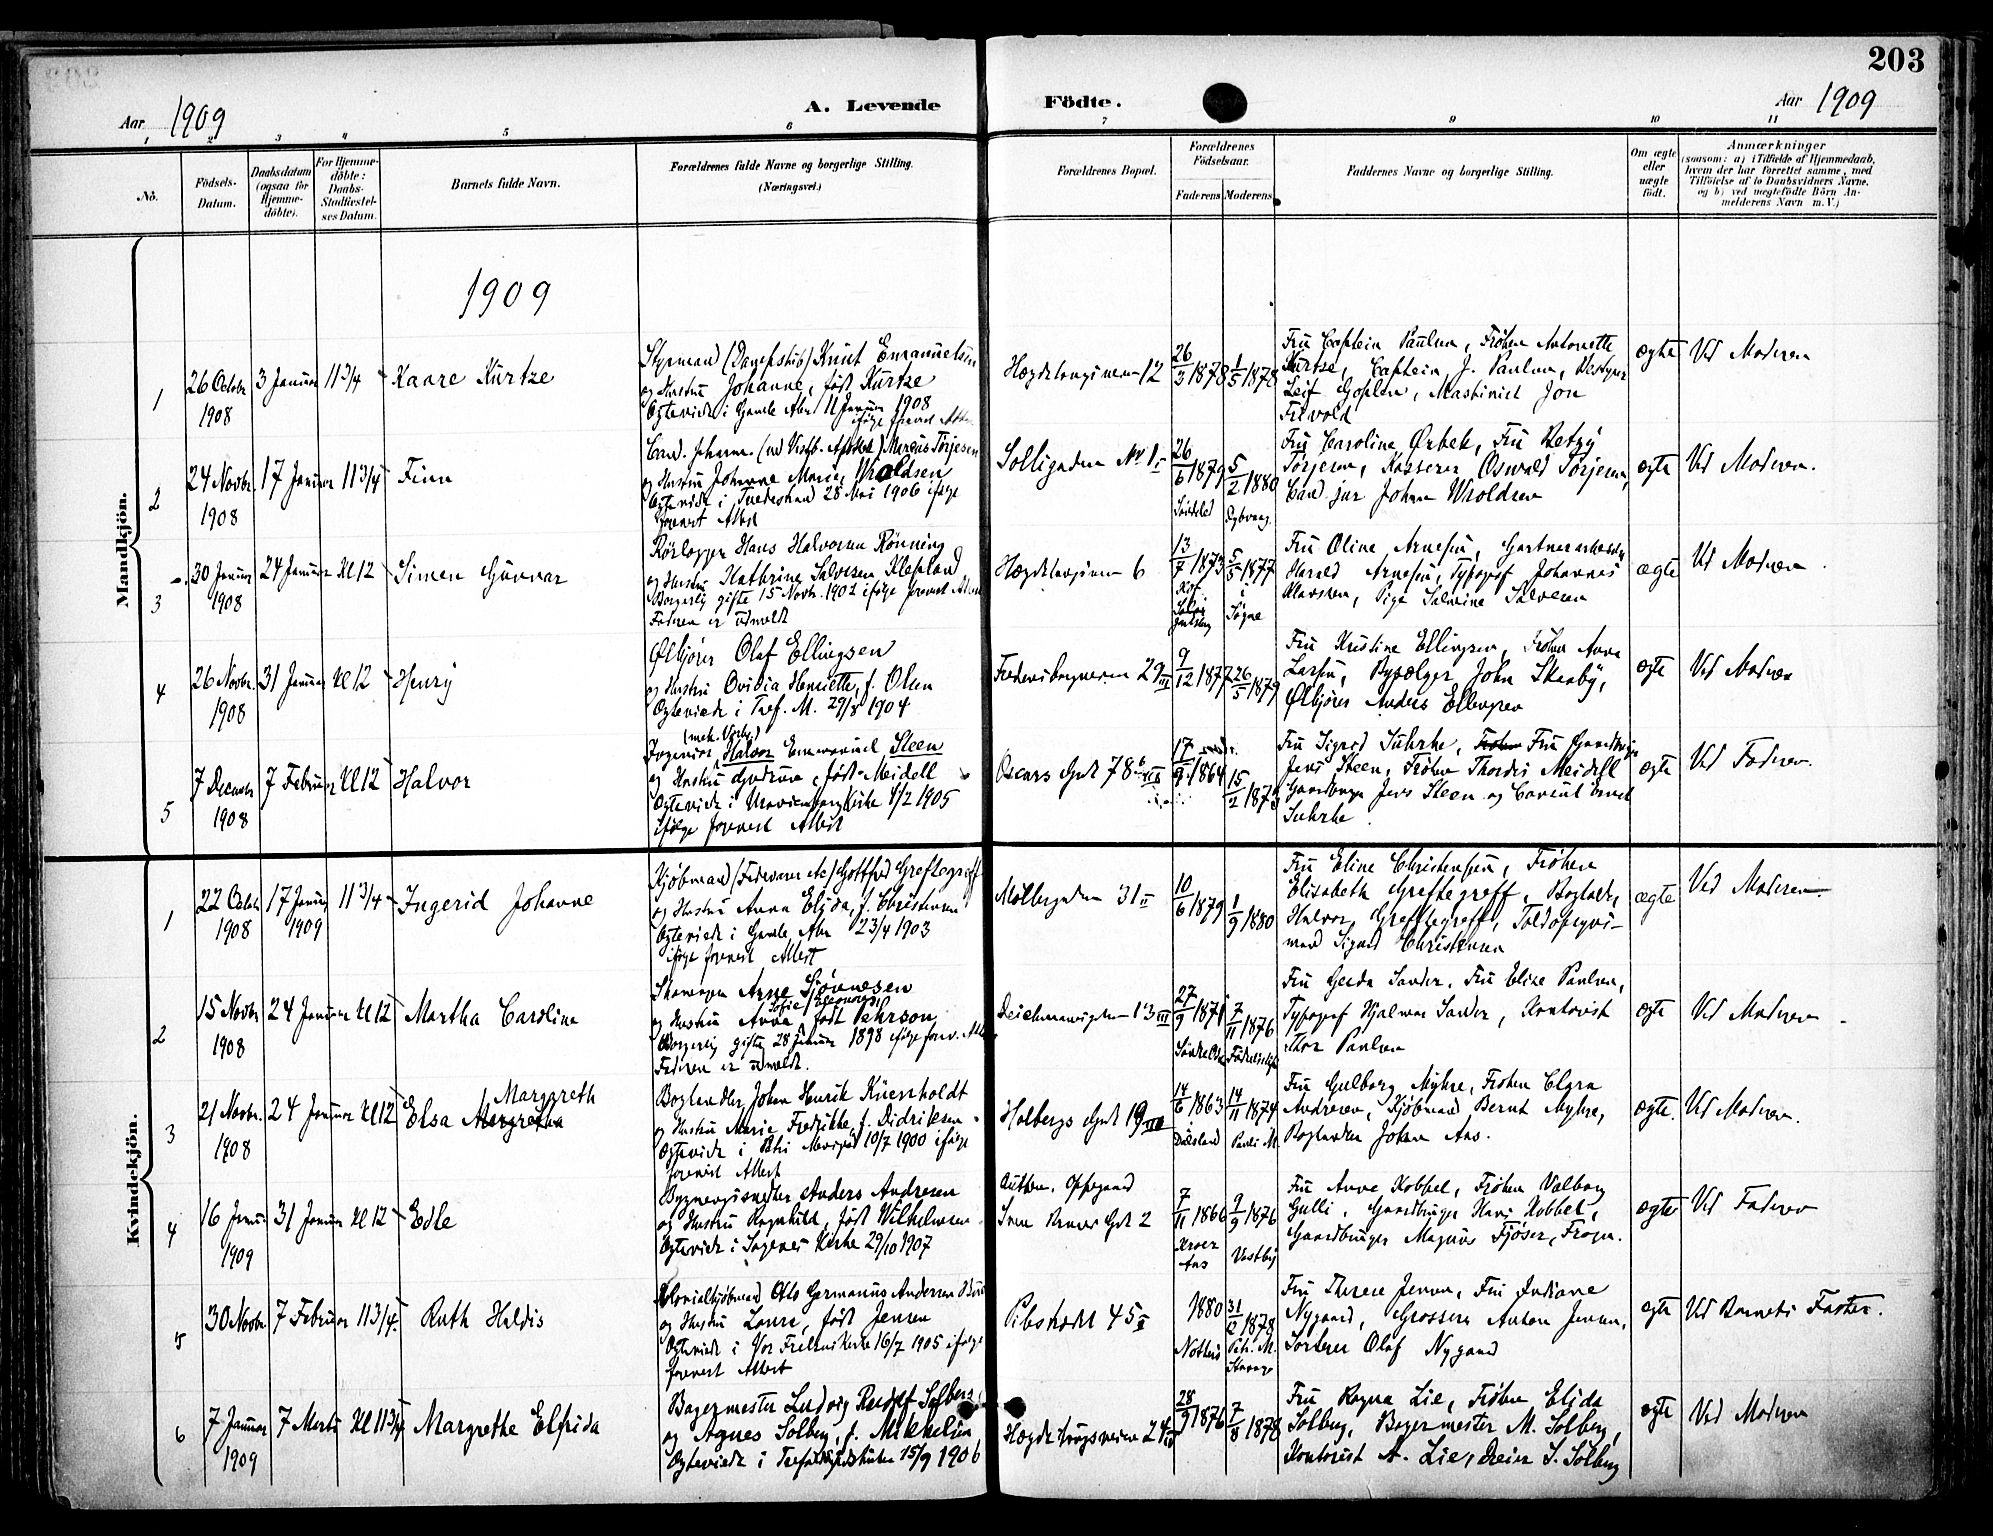 203
Aar 1909
A. Levende
Födte.
Aar 1909
1 2 3 4 5 6 7 8 9 10 11
No.
Födsels-Datum.
Daabsdatum (ogsaa for Hjemme-döbte).
For Hjemme-döbte: Daabs-Stadfæstel-ses Datum.
Barnets fulde Navn.
Forældrenes fulde Navne og borgerlige Stilling.
(Næringsvei.)
Forældrenes Bopæl.
Forældrenes Födselsaar.
Faderens Moderens
Faddernes Navne og borgerlige Stilling.
Om ægte eller uægte födt.
Anmærkninger
(saasom: a) i Tilfælde af Hjemmedaab,
hvem der har forrettet samme, med
Tilföielse af to Daabsvidners Navne,
og b) ved uegtefödte Börn An-
melderens Navn m. V.)
1909
Mandkjön.
1
26 Octobr 1908
3 Januar
11 3/4
Kaare Kurtze
Styrmand (Dampskib) Knut Emanuelsen
og Hustru Johanne, født Kurtze
Ægteviede i Gamle Aker 11 Januar 1908
ifølge forevist Attest
12
26/3 1878
1/5 1878
Fru Captein Paulsen, Frøken Antonette
Kurtze, Captein J. Paulsen, Bestyrer
Leif Goplen, Maskinist Jon
ægte
Ved Moderen
2
24 Novbr. 1908
17 Januar
11 3/4
Finn
Marcus Törjesen
og Hustru Johanne Marie, Wroldsen
Ægteviede i Tvedestrand 28 Mai 1906 ifølge
forevist Attest
Solligaden No 1
26/6 1879
5/2 1880
Søndeled
Dybvaag
Fru Caroline Ørbek, Fru Betzy
Törjesen, Kasserer Oswald Törjesen,
Cand jur Johan Wroldsen
ægte
Ved Moderen.
3
30 Januar 1908
24 Januar
Kl 12
Simen Gunnar
Rørlægger Hans Halvorsen Rönning
og Hustru Kathrine Salvesen Klepland
Borgerlig gifte 15 Novbr. 1902 ifølge forevist Attest
Faderen er udmeldt
6
13/7 1873
5/5 1877
Søgne
Fru Oline Arnesen, Gartnerarbeider
Harald Arnesen, Typograf Johannes
Klavssen, Pige Salmine Salvesen
ægte
Ved Moderen
4
26 Novbr. 1908
31 Januar
Kl 12
Henry
Ølkjører Olaf Ellingsen
og Hustru Ovidia Henriette, f. Olsen
Ægteviede i Tref. M. 29/8 1904
29 III
9/12 1877
26/5 1879
Fru Kristine Ellingsen, Frøken Anna
Larsen, Bypælger John Skaaby,
Ølkjører Anders Ellingsen
ægte
Ved Moderen
5
7 December 1908
7 Februar
Kl 12
Halvor
Ingeniør Halvor Emmanuel Steen
og Hustru Gudrun, født Meidell
Ægteviede i Uranienborg Kirke 4/2 1905
ifølge forevist Attest
Oscars Gade 78
17/9 1864
15/2 1873
Fru Sigrid Suhrke, Fru Gaardbruger
Jens Steen, Frøken Thordis Meidell
Gaardbruger Jens Steen og Consul
Suhrke
ægte
Ved Faderen.
Kvindekjön.
1
22 Octobr 1908
17 Januar 1909
11 3/4
Ingerid Johanne
Kjøbmand (Fedevarer etc) Gottfred Greftegreff
og Hustru Anna Elida, f. Christensen
Ægteviede i Gamle Aker 23/4 1903
ifølge forevist Attest
Møllergaden 31 II
10/6 1879
1/9 1880
Fru Eline Christensen, Frøken
Elisabeth Greftegreff, Boghandler
Halvor Greftegreff, Toldopsyns-
mand Sigurd Christensen
ægte
Ved Moderen
2
15 Novbr 1908
24 Januar
Kl 12
Martha Caroline
Skomager Arne Sjønnesen
og Hustru Anna Sofie, født Pehrson
Borgerlig gifte 28 Januar 1898 ifølge forev. Attest
Faderen er udmeldt.
13 III
27/9 1871
7/11 1876
Fru Gerda Sander, Fru Elise Paulsen,
Typograf Hjalmar Sander, Kontorist
Thor Paulsen
ægte
Ved Moderen
3
21 Novbr. 1908
24 Januar
Kl 12
Elsa Margreth
Boghandler Johan Henrik Küenholdt
og Hustru Marie Fredrikke, f. Didriksen
Ægteviede i Petri Menighed 10/7 1900 ifølge
forevist Attest
Holbergs Gade 19 III
14/6 1863
14/11 1874
Pauli M.
Fru Gulborg Myhre, Frøken Clara
Andresen, Kjøbmand Bernt Myhre,
Boghandler Johan Aas.
ægte.
Ved Moderen.
4
16 Januar 1909
31 Januar
Kl 12
Edle
Bygningssnedker Anders Andresen
og Hustru Ragnhild, født Vilhelmsen
Ægteviede i Sagenes Kirke 29/10 1907
Oppegaard
Sven Bruns Gade 2
7/11 1866
9/9 1876
Kroer Aas
Vestby
Fru Anne Kobbel, Frøken Valborg
Gulli, Gaardbruger Hans Kobbel,
Gaardbruger Magnus Fjöser, Frogn.
ægte
Ved Faderen
5
30 Novbr.
7 Februar
11 3/4.
Ruth Haldis
Kolonialkjøbmand Otto Germanus Andersen
og Hustru Laura, født Jensen
Ægteviede i Vor Frelsers Kirke 16/7 1905 ifølge
forevist Attest
Pilestrædet 45
1880
31/2 1878
Petri M. Stavanger
Fru Therese Jensen, Fru Indiane
Nygaard, Grosserer Anton Jensen,
Sorterer Olaf Nygaard
ægte
Ved Barnets Faster.
6
7 Januar 1909
7 Marts
Kl 11 3/4
Margrethe Elfrida
Bagermester Ludvig Rudolf Solberg
og Agnes Solberg, f. Mikkelsen
Ægteviede i Trefoldighedskirken 15/9 1906
24
28/9 1876
7/8 1878
Fru Ragna Lie, Frøken Elida
Solberg, Bagermester M. Solberg,
Kontorist A. Lie, Dreier S. Solberg
ægte
Ved Moderen